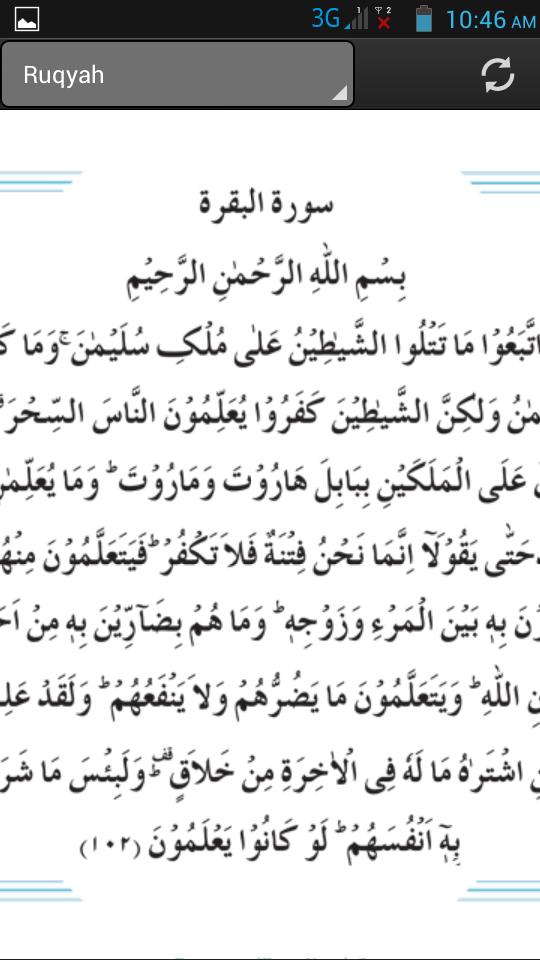 3G 2 10:46 AM
Ruqyah
سورة البقرة
بِسْمِ اللّٰهِ الرَّحْمٰنِ الرَّحِيْمِ
اتَّبَعُوْا مَا تَتْلُوا الشَّيٰطِيْنُ عَلٰى مُلْكِ سُلَيْمٰنَ ۚ وَمَا
وَلٰكِنَّ الشَّيٰطِيْنَ كَفَرُوْا يُعَلِّمُوْنَ النَّاسَ السِّحْرَ
عَلَى الْمَلَكَيْنِ بِبَابِلَ هَارُوْتَ وَمَارُوْتَ ؕ وَمَا
حَتّٰى يَقُوْلَاۤ اِنَّمَا نَحْنُ فِتْنَةٌ فَلَا تَكْفُرْ ؕ فَيَتَعَلَّمُوْنَ
بِهٖ بَيْنَ الْمَرْءِ وَزَوْجِهٖ ؕ وَمَا هُمْ بِضَآرِّيْنَ بِهٖ مِنْ
اللّٰهِ ؕ وَيَتَعَلَّمُوْنَ مَا يَضُرُّهُمْ وَلَا يَنْفَعُهُمْ ؕ وَلَقَدْ
اشْتَرٰىهُ مَا لَهٗ فِى الْاٰخِرَةِ مِنْ خَلَاقٍ ؕ وَلَبِئْسَ مَا
بِهٖۤ اَنْفُسَهُمْ ؕ لَوْ كَانُوْا يَعْلَمُوْنَ (۱۰۲)